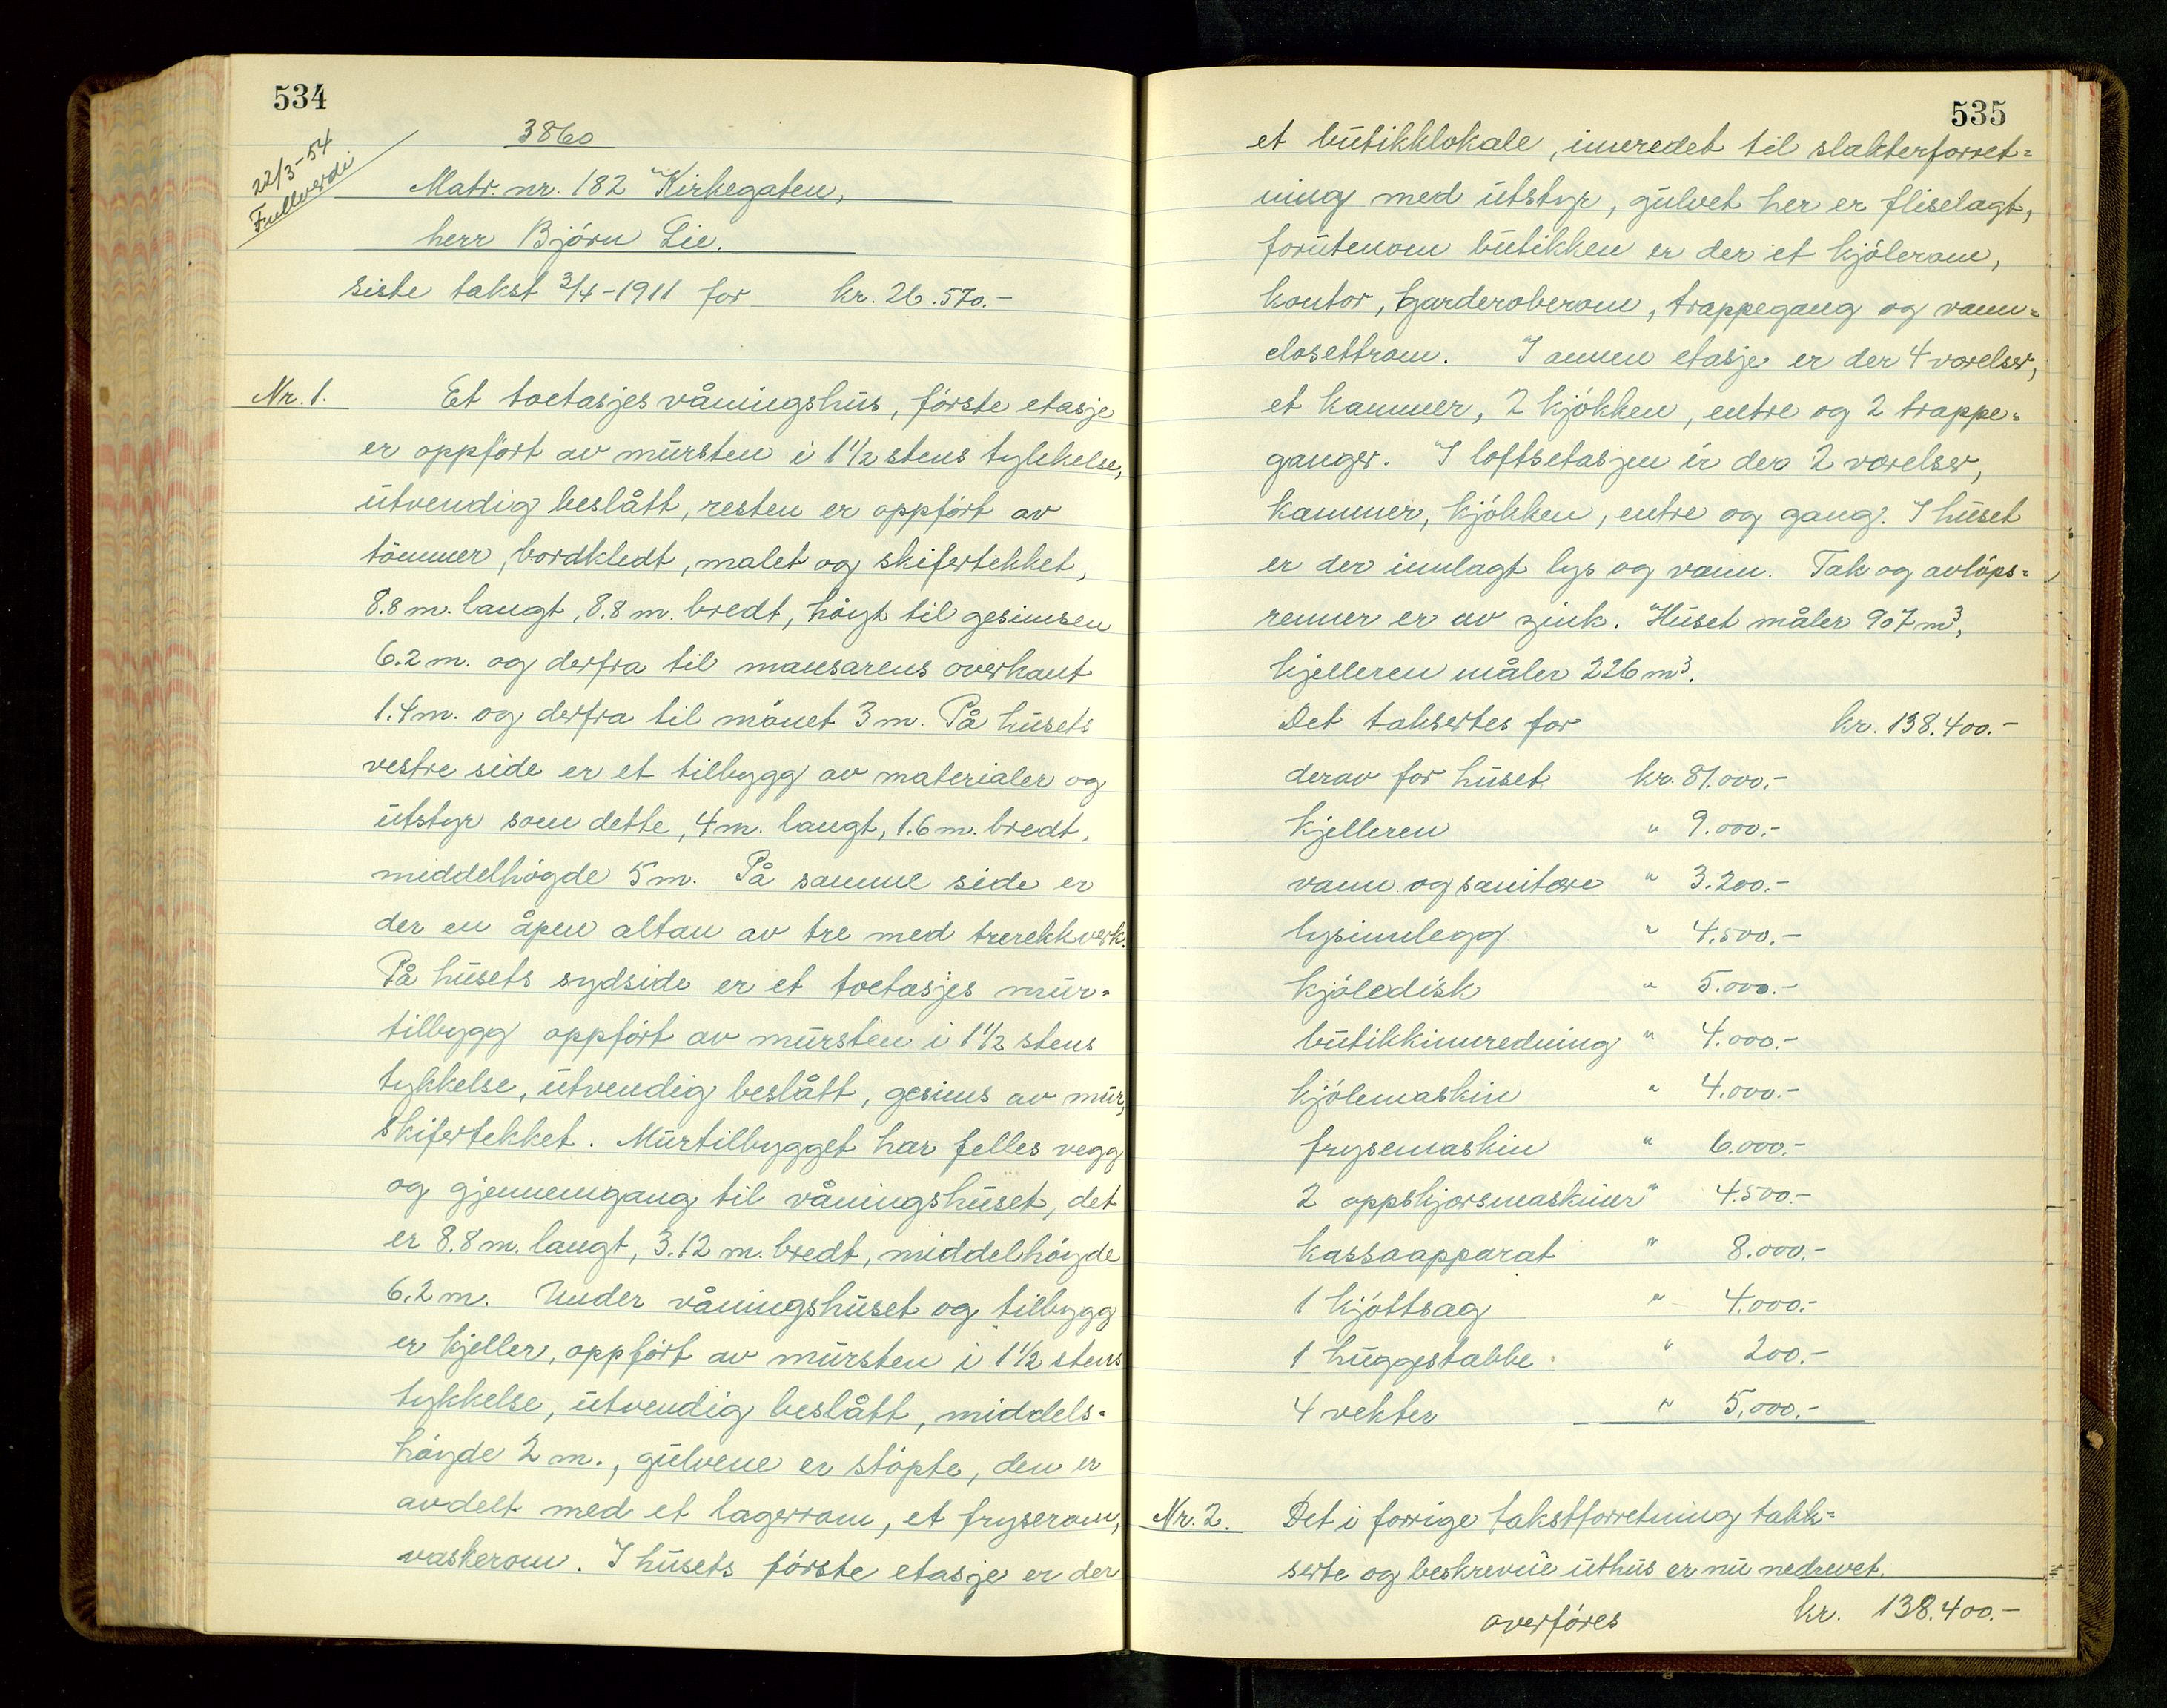 534
22/3-54
Fullverdi
3860
Matr. nr. 182 Kirkegaten,
herr Bjórn Lie.
siste takst 3/4-1911 for kr. 26.570.-
Nr. 1. Et toetasjes våningshus, fórste etasje
er oppfórt av mursten i 1 1/2 stens tykkelse,
utvendig beslått, resten er oppfórt av
tömmer, bordkledt, malet og skifertekket,
8.8 m. langt, 8.8 m. bredt, hóigt til gesimsen
6.2 m. og derfra til mansarens overkant
1.4 m. og derfra til mónet 3 m. På husets
vestre side er et tilbygg av materialer og
utstyr som dette, 4 m. langt, 1.6 m. bredt,
middelhógde 5 m. På samme side er
der en åpen altan av tre med trerekkverk.
På husets sydside er et toetasjes mur=
tilbygg oppfórt av mursten i 1 1/2 stens
tykkelse, utvendig beslått, gesims av mur,
skifertekket. Murtilbygget har felles vegg
og gjennemgang til våningshuset, det
er 8.8 m. langt, 3.12 m. bredt, middelhóigde
6.2 m. Under våningshuset og tilbygg
er kjeller, oppfórt av mursten i 1 1/2 stens
tykkelse, utvendig beslått, middels=
hóigde 2 m., gulvene er stópte, den er
avdelt med et lagerrom, et fryserom,
vaskerom. I husets fórste etasje er der
535
et butikklokale, inneredet til slakterforret=
ning med utstyr, gulvet her er fliselagt,
forutenom butikken er der et kjólerom,
kontor, garderoberom, trappegang og vann=
closettrom. I annen etasje er der 4 værelser,
et kammer, 2 kjókken, entre og 2 trappe=
ganger. I loftsetasjen er der 2 værelser,
kammer, kjókken, entre og gang. I huset
er der innlagt lys og vann. Tak og avlóps=
renner er av zink. Huset måler 907 m³,
kjelleren måler 226 m³.
Det taksertes for kr. 138.400.-
derav for huset kr. 81.000.-
kjelleren " 9.000.-
vann og sanitære " 3.200.-
lysinnlegg " 4.500.-
kjóledisk " 5.000.-
butikkinnredning " 4.000.-
kjólemaskin " 4.000.-
frysemaskin " 6.000.-
2 oppskjærsmaskiner " 4.500.-
kassaapparat " 8.000.-
1 kjóttsag " 4.000.-
1 huggestabbe " 200.-
4 vekter " 5.000.-
Nr. 2. Det i forrige takstforretning takk=
serte og beskrevne uthus er nu nedrevet.
overfóres kr. 138.400.-